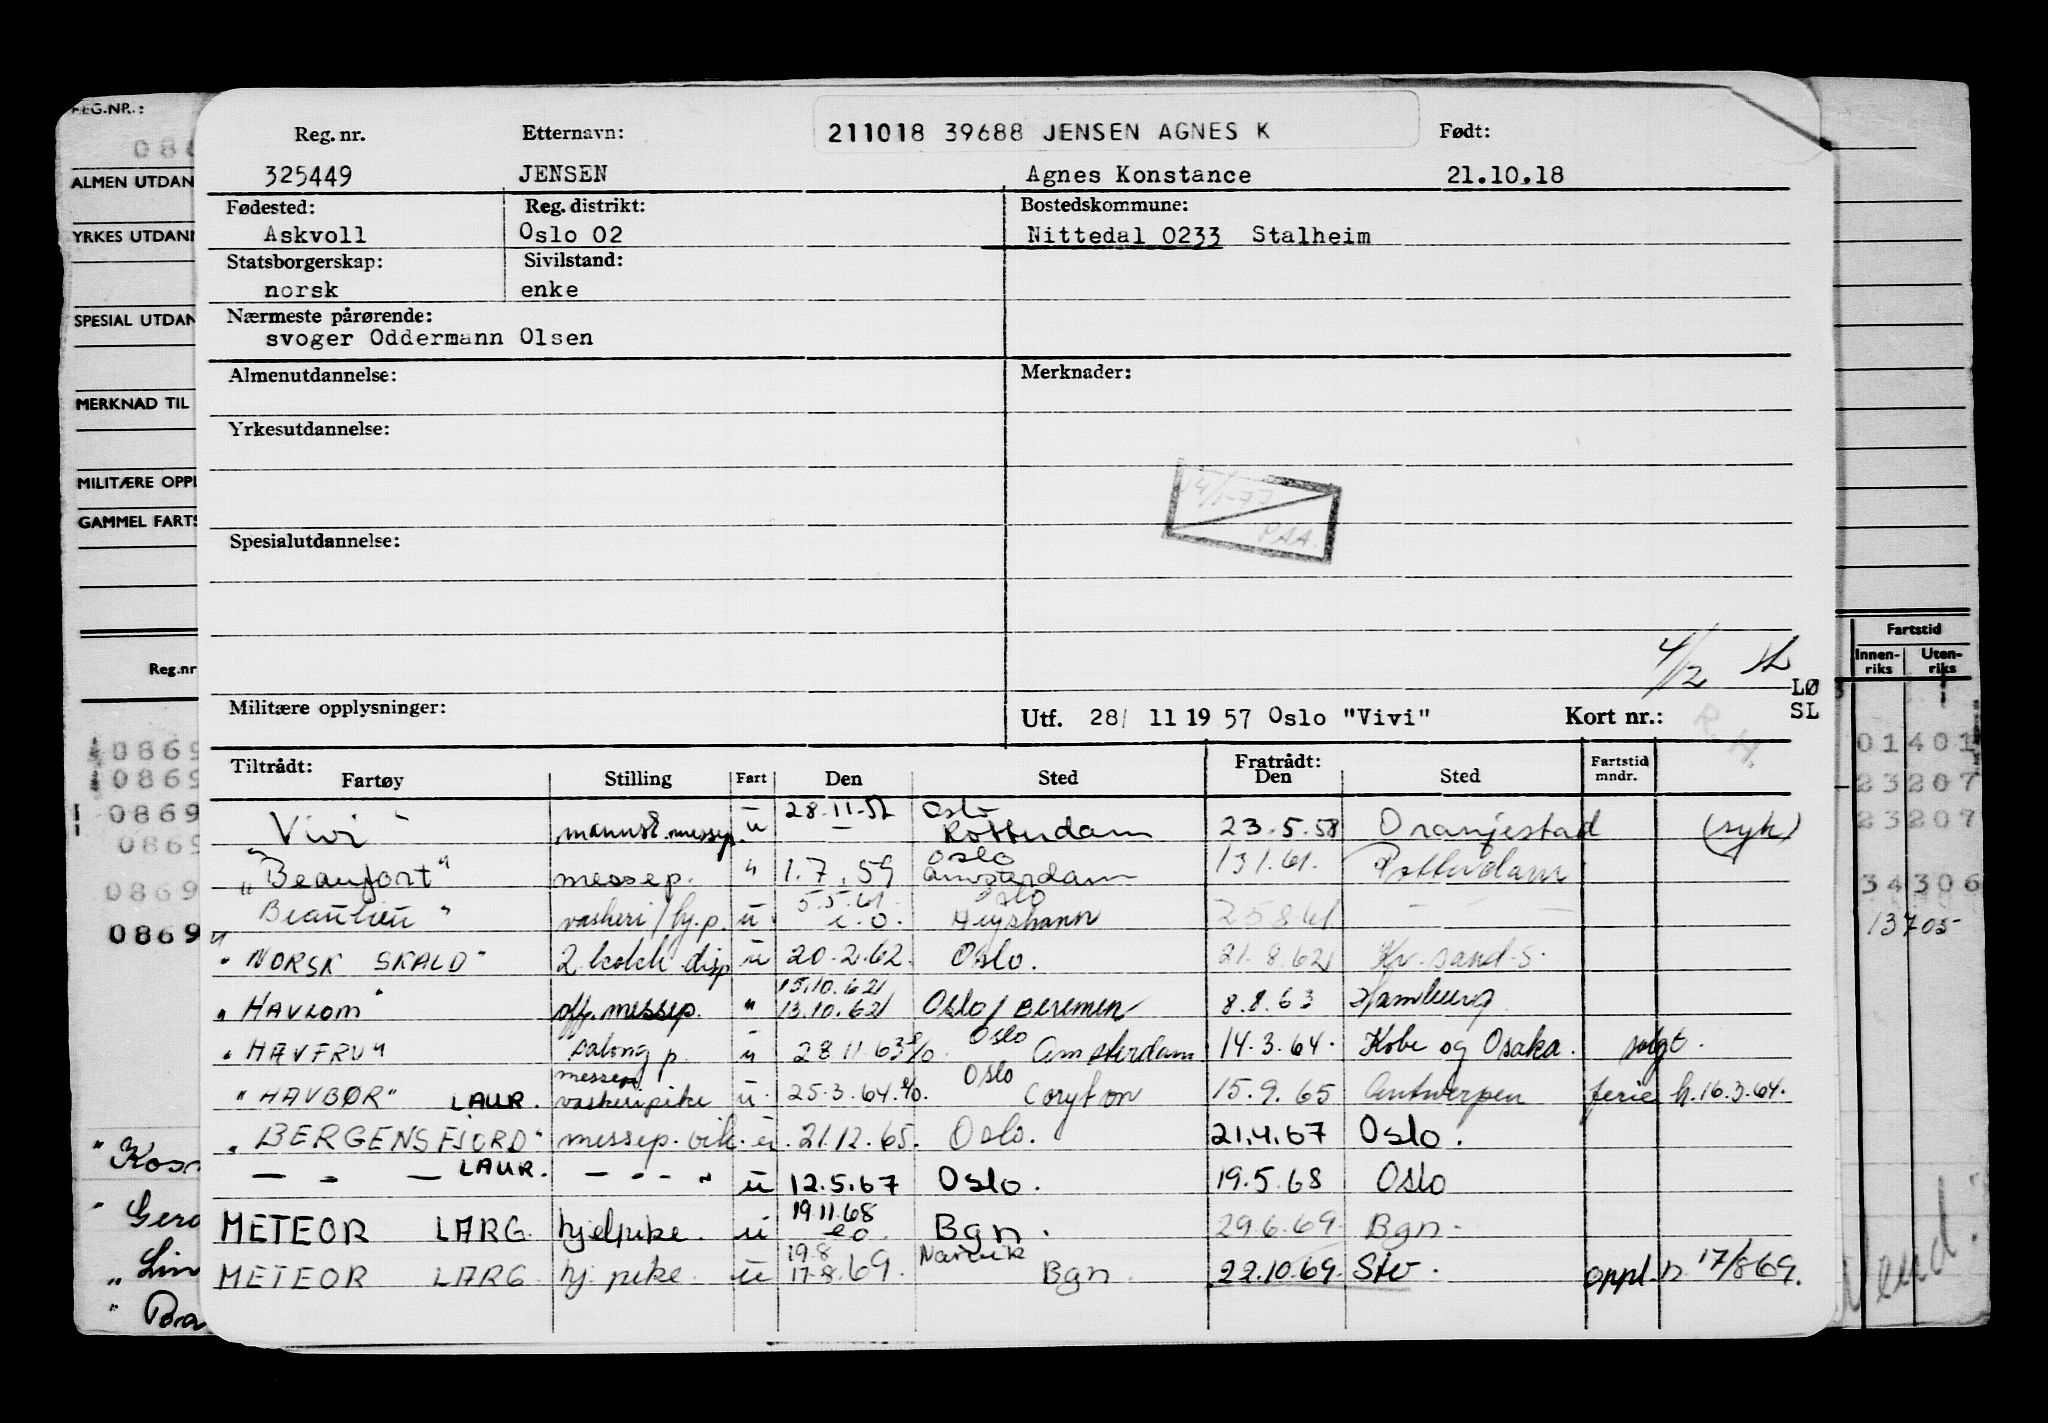 Reg. nr. Etternavn: 211018 39688 JENSEN AGNES K Født:
325449 JENSEN Agnes Konstance 21.10.18
Fødested: Reg. distrikt: Bostedskommune:
Askvoll Oslo 02 Nittedal 0233 Stalheim
Statsborgerskap: Sivilstand:
norsk enke
Nærmeste pårørende:
svoger Oddermann Olsen
Almenutdannelse: Merknader:
Yrkesutdannelse:
14/1-77
PAA.
Spesialutdannelse:
4/2
LØ
SL
Militære opplysninger: Utf. 28/ 11 19 57 Oslo "Vivi" Kort nr.:
R.H.
Tiltrådt: Fratrådt:
Fartøy Stilling Fart Den Sted Den Sted Fartstid mndr.
28.11.57 Oslo
"Vivi" messep. u — Rotterdam 23.5.58 Oranjestad (syk)
Oslo
"Beaufort" messep. " 1.7.59 Amsterdam 13.1.61. Rotterdam
5.5.61 Oslo
"Beaulieu" vaskeri/hj.p. u e.o. 25.8.61 — — —
"NORSK SKALD" 2 kokk disp u 20.2.62. Oslo. 21.8.62 Kr.sand.S.
15.10.62
"HAVLOM" off. messep. " 13.10.62 Oslo/Bremen 8.8.63 Hamburg
Oslo
"HAVFRU" salong p. u 28.11.63 Amsterdam 14.3.64. Kobe og Osaka. solgt.
messep Oslo
"HAVBØR" LAUR. vaskeripike u 25.3.64 Coryton 15.9.65 Antwerpen ferie h. 16.3.64.
"BERGENSFJORD" messep. vik. u 21.12.65. Oslo. 21.4.67 Oslo.
— - — LAUR. — - - " u 12.5.67 Oslo. 19.5.68 Oslo
19.11.68
METEOR LARG. hjelpike. u eo. Bgn. 29.6.69. Bgn.
19.8 Narvik
METEOR LARG. hj. pike. u 17.8.69. Bgn. 22.10.69. Stv. oppl. n. 17/8 69.
REG.NR.:
086
ALMEN UTDAN
YRKES UTDANN
SPESIAL UTDAN
MERKNAD TIL
MILITÆRE OPPL
GAMMEL FARTS
Reg.nr
0869
0869
0869
0869
0869
0869
"Kos
"Gero
"Lin
"Bra
Fartstid
Innen-riks Uten-riks
01401
23207
23207
34306
13705